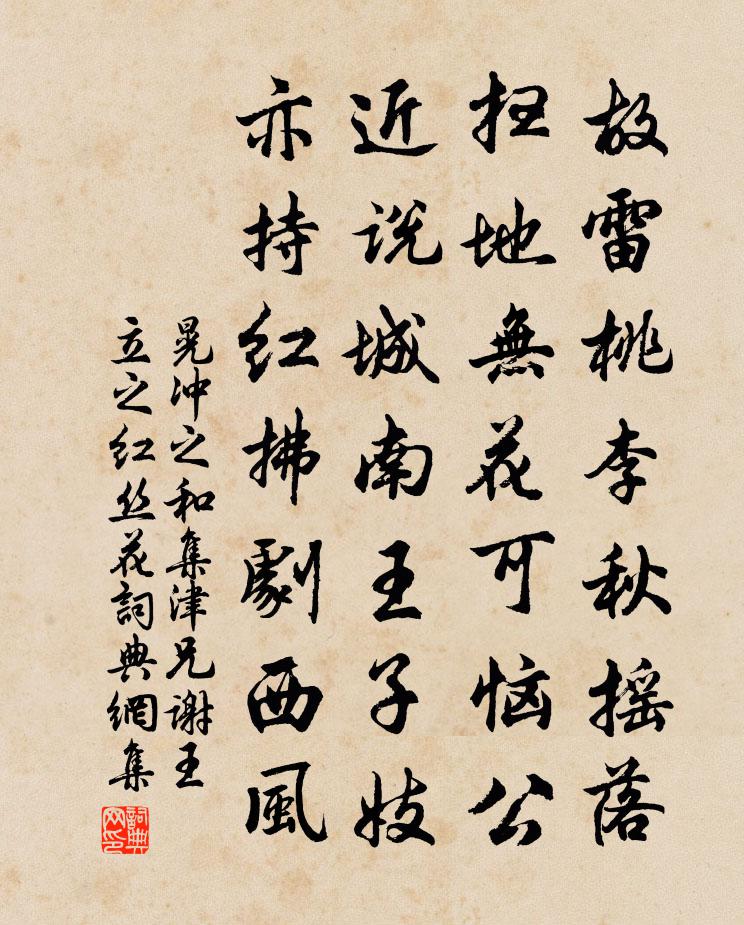 故雷桃李秋摇落
扫地無花可恼公
近説城南王子妓
亦持红拂劇西風
晁冲之和集津兄謝王
立之红丝花詞典網集
詞典
网印